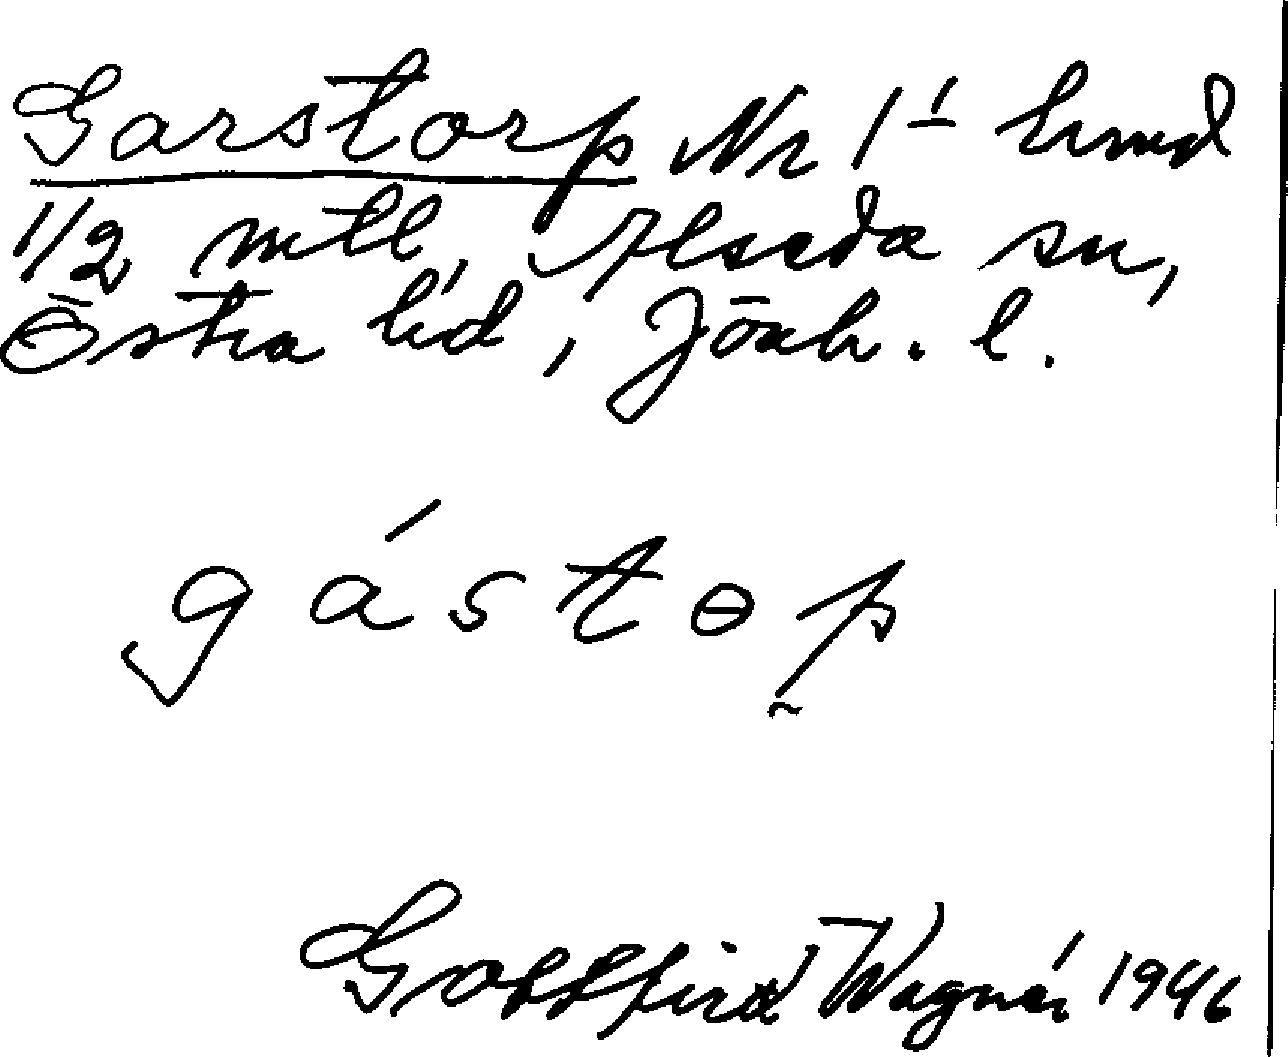 Garstorp Nr 1
1/2 mtl, Alseda sn,
Östra hd, Jönk. l.
gástɵp
Gottfrid Wagnér 1946